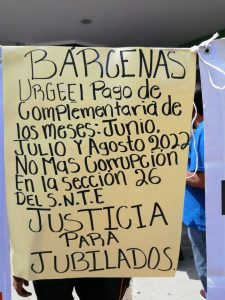 BÁRCENAS
URGE El Pago de
Complementaria de
los meses: Junio,
Julio Y Agosto 2022
No Mas Corrupción
En la sección 26
DEL S.N.T.E
JUSTICIA
PARA
JUBILADOS